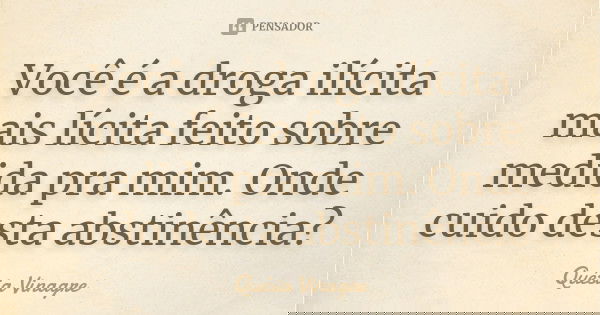 PENSADOR
Você é a droga ilícita
mais lícita feito sobre
medida pra mim. Onde
cuido desta abstinência?
Quésia Vinagre